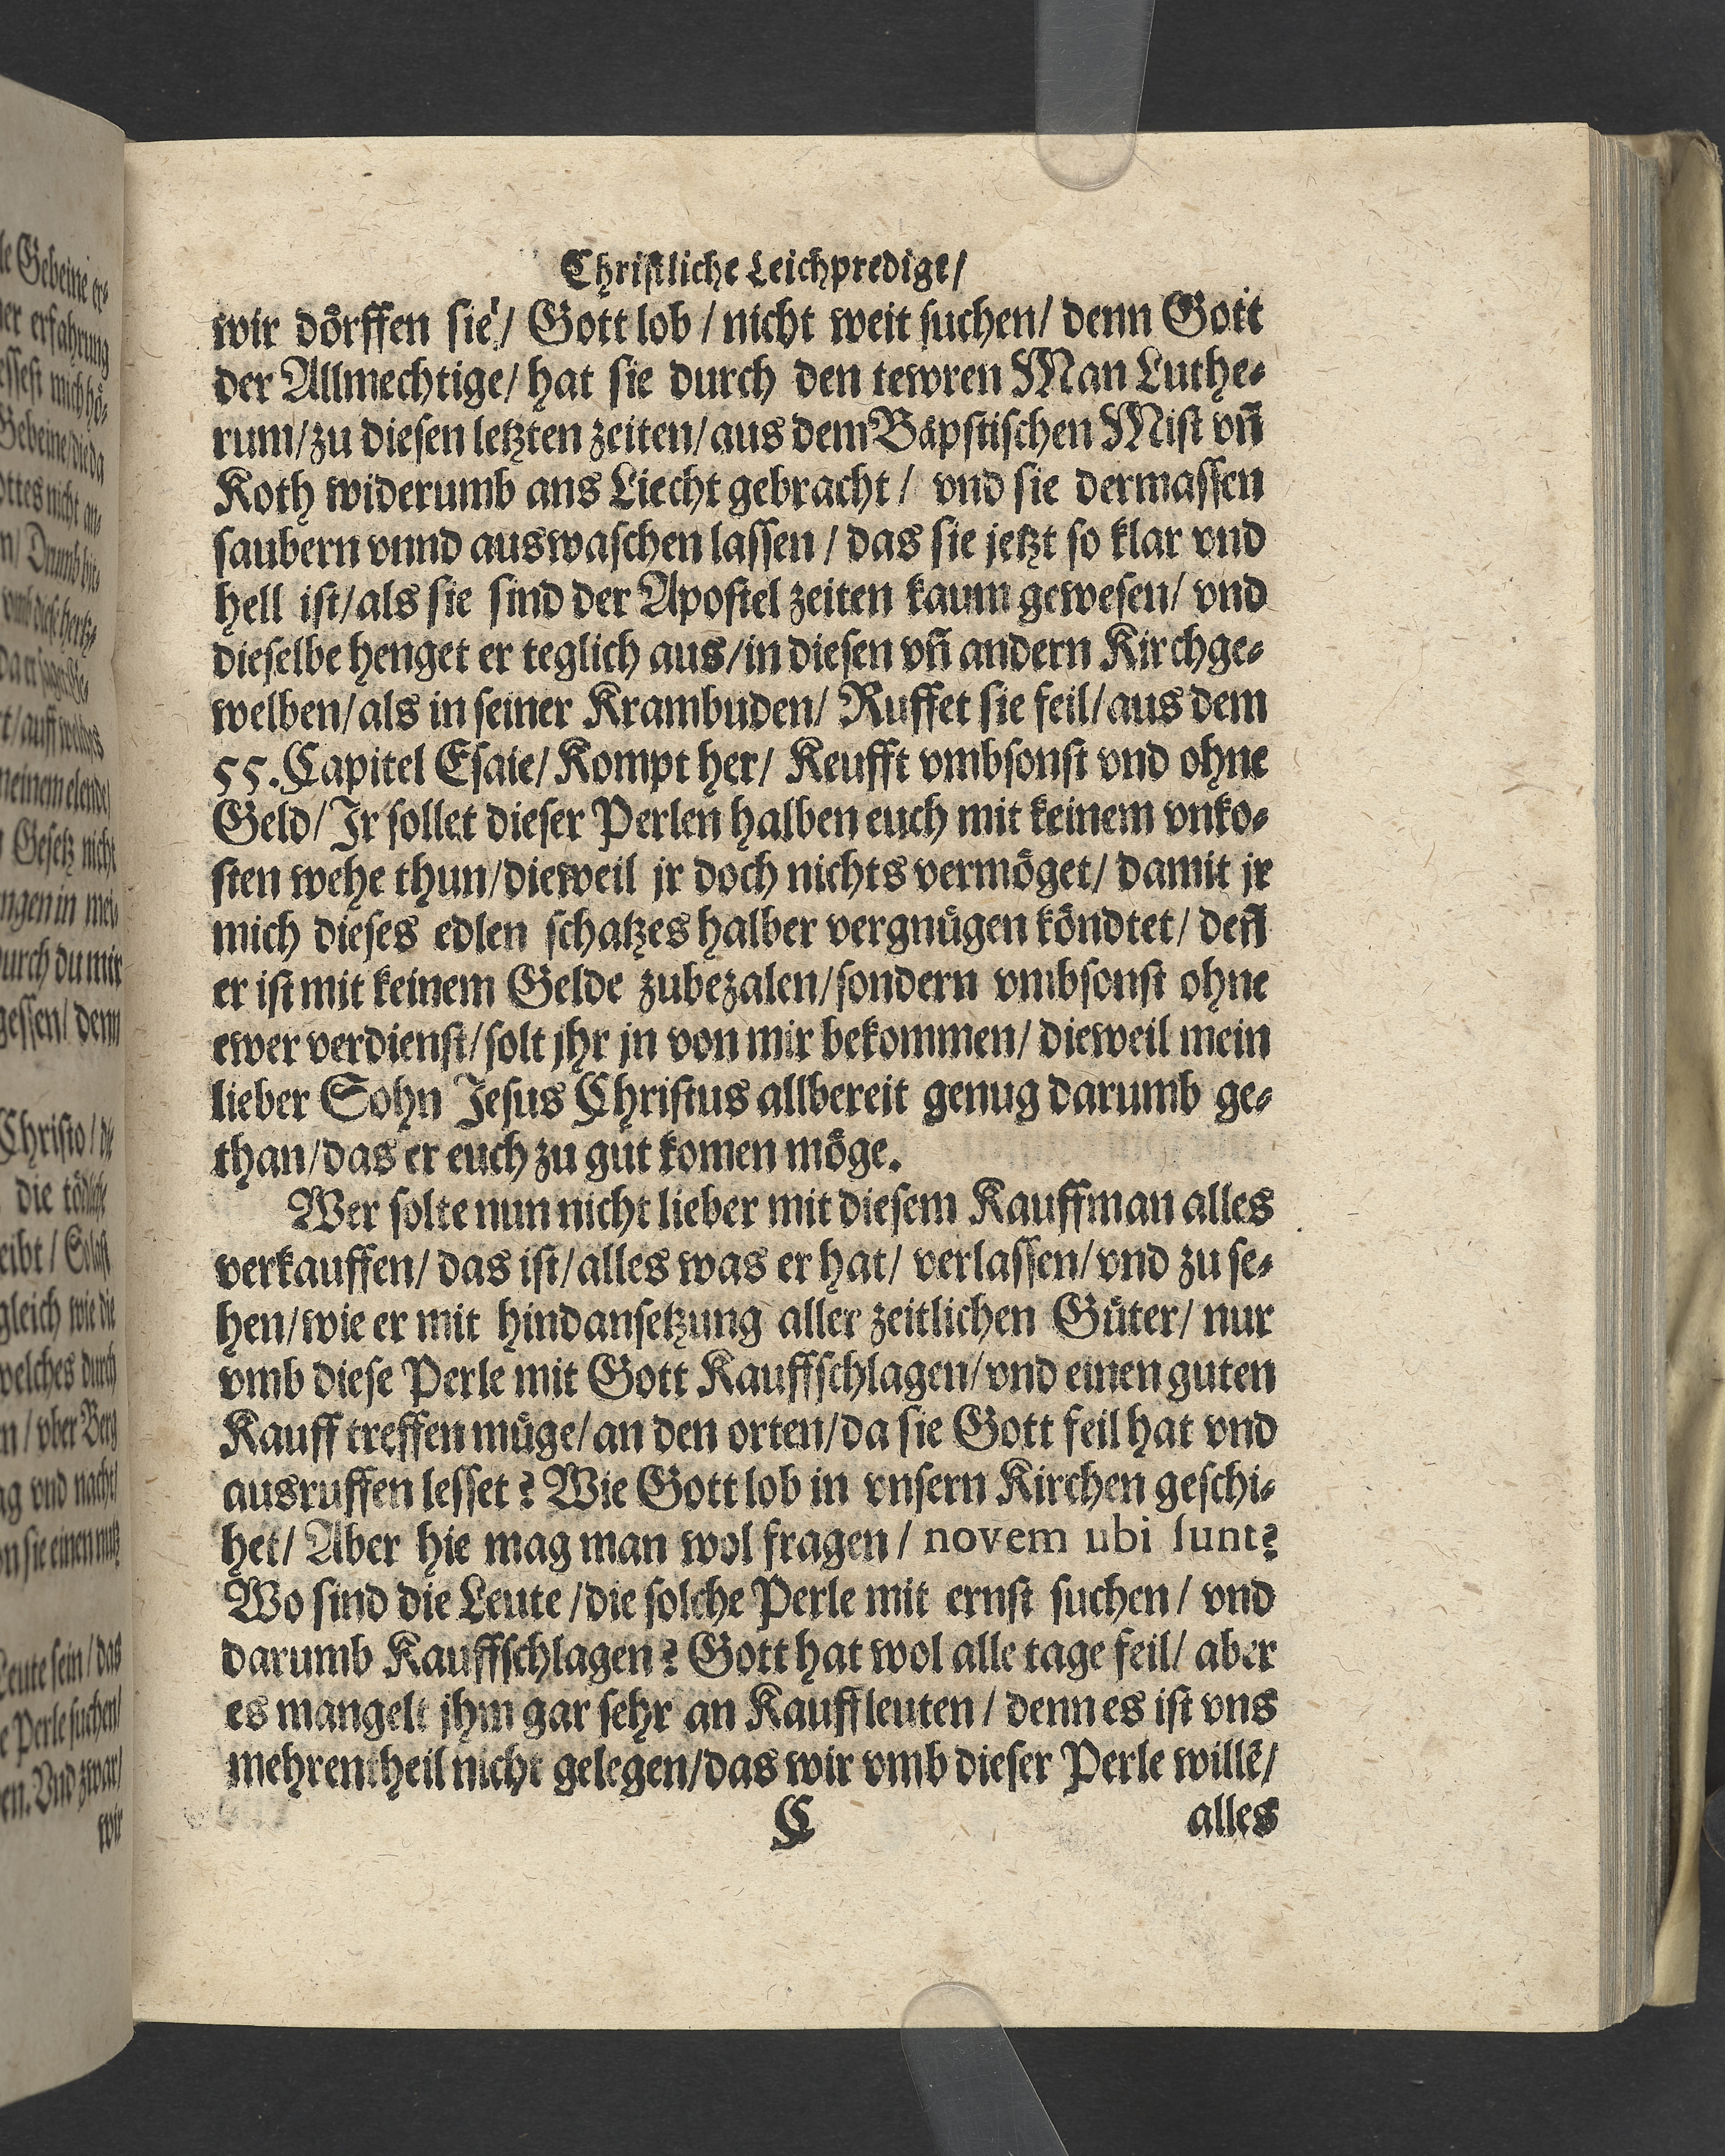 Christliche Leichpredige/
wir dörffen sie/ Gott lob / nicht weit suchen/ denn Gott
der Allmechtige/ hat sie durch den tewren Man Luthe-
rum/ zu diesen letzten zeiten/ aus dem Bäpstischen Mist vñ
Koth widerumb ans Liecht gebracht/ vnd sie dermassen
saubern vnnd auswaschen lassen / das sie jetzt so klar vnd
hell ist/ als sie sind der Apostel zeiten kaum gewesen/ vnd
dieselbe henget er teglich aus/ in diesen vñ andern Kirchge-
welben/ als in seiner Krambuden/ Ruffet sie feil/ aus dem
55. Capitel Esaie/ Kompt her/ Keufft vmbsonst vnd ohne
Geld/ Ir sollet dieser Perlen halben euch mit keinem vnko-
sten wehe thun/ dieweil jr doch nichts vermöget/ damit jr
mich dieses edlen schatzes halber vergnügen köndtet/ deñ
er ist mit keinem Gelde zubezalen/ sondern vmbsonst ohne
ewer verdienst/ solt jhr jn von mir bekommen/ dieweil mein
lieber Sohn Jesus Christus allbereit genug darumb ge-
than/ das er euch zu gut komen möge.
Wer solte nun nicht lieber mit diesem Kauffman alles
verkauffen/ das ist/ alles was er hat/ verlassen/ vnd zu se-
hen/ wie er mit hindansetzung aller zeitlichen Güter/ nur
vmb diese Perle mit Gott Kauffschlagen/ vnd einen guten
Kauff treffen müge/ an den orten/ da sie Gott feil hat vnd
ausruffen lesset? Wie Gott lob in vnsern Kirchen geschi-
het/ Aber hie mag man wol fragen / novem ubi sunt?
Wo sind die Leute / die solche Perle mit ernst suchen/ vnd
darumb Kauffschlagen? Gott hat wol alle tage feil/ aber
es mangelt jhm gar sehr an Kauffleuten / denn es ist vns
mehrentheil nicht gelegen/ das wir vmb dieser Perle willē/
C alles